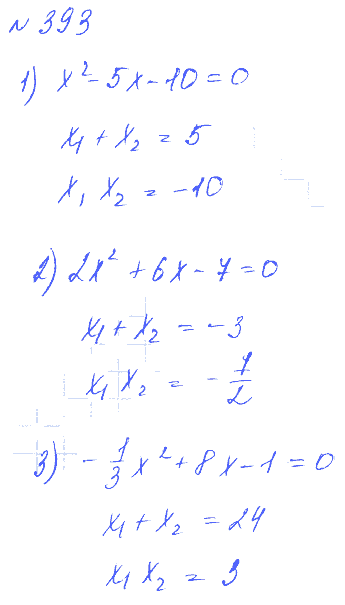 № 393
1) x² - 5x - 10 = 0
x₁ + x₂ = 5
x₁ x₂ = -10
2) 2x² + 6x - 7 = 0
x₁ + x₂ = -3
x₁ x₂ = - 7/2
3) - 1/3 x² + 8x - 1 = 0
x₁ + x₂ = 24
x₁ x₂ = 3